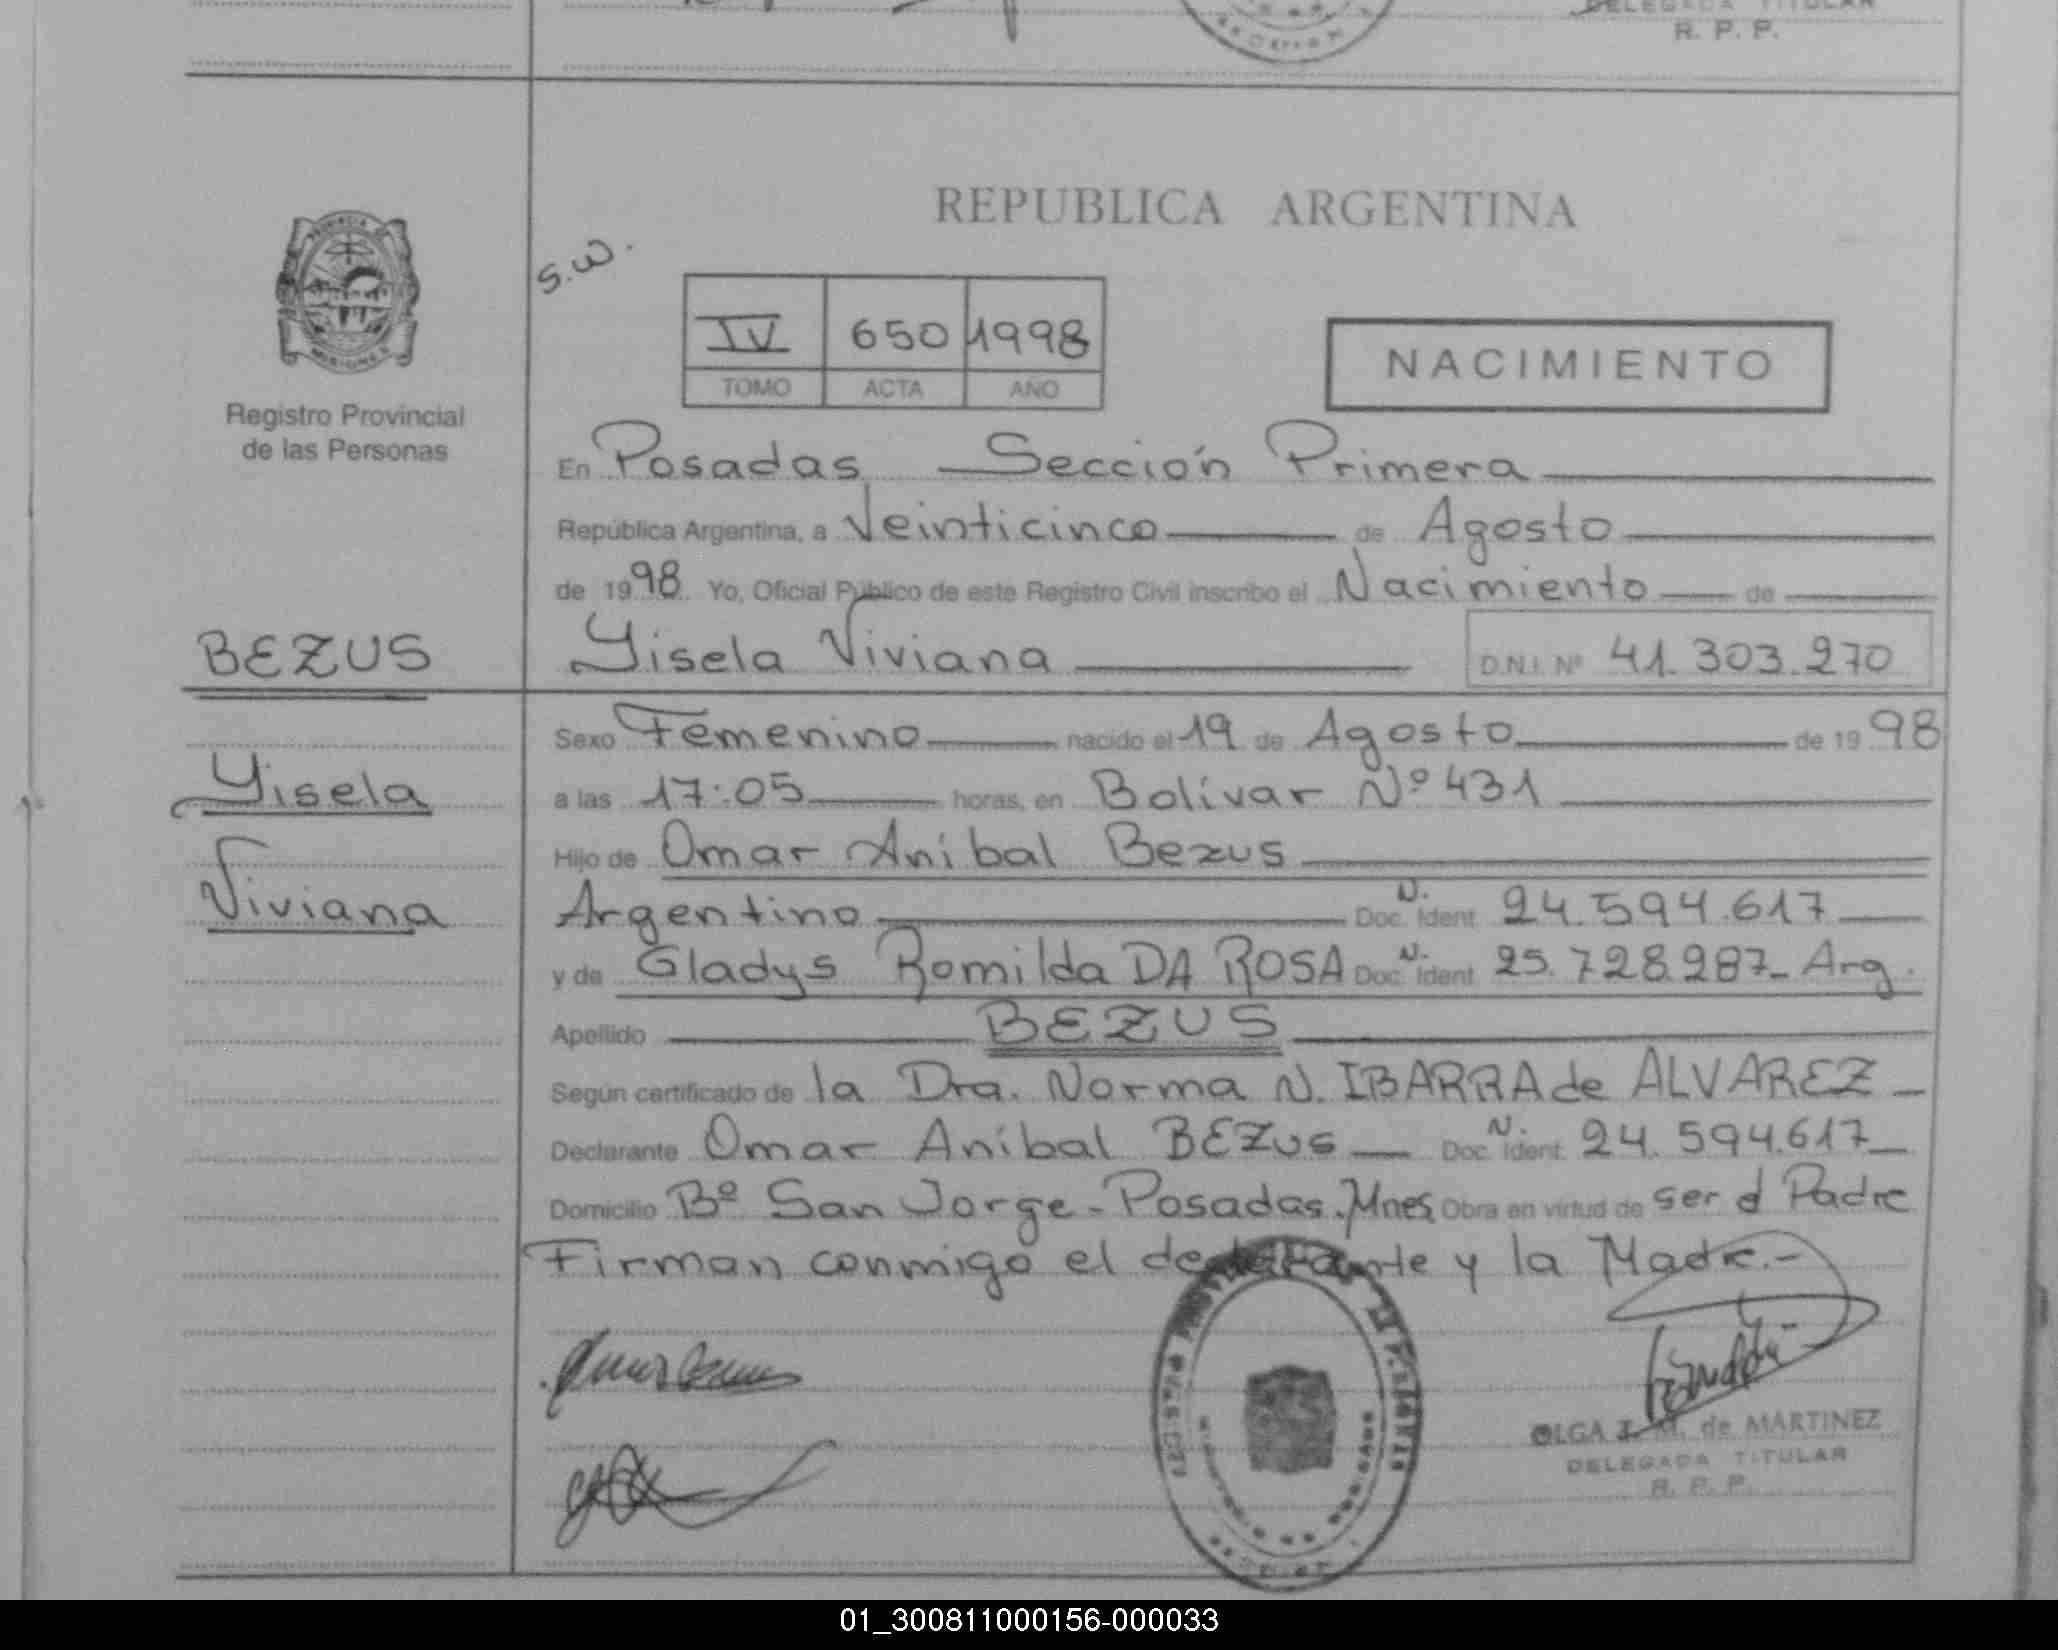 DELEGADA TITULAR
R. P. P.
REPUBLICA ARGENTINA
S.W.
PROVINCIA DE
MISIONES
Registro Provincial
de las Personas
IV 650 1998
TOMO ACTA AÑO
NACIMIENTO
En Posadas Sección Primera
República Argentina, a Veinticinco de Agosto
de 1998 Yo, Oficial Público de este Registro Civil inscribo el Nacimiento de
BEZUS
Yisela Viviana D.N.I. Nº 41.303.270
Yisela
Viviana
Sexo Femenino nacido el 19 de Agosto de 1998
a las 17:05 horas, en Bolívar Nº 431
Hijo de Omar Aníbal Bezus
Argentino N. Doc. Ident. 24.594.617
y de Gladys Romilda DA ROSA N. Doc. Ident. 25.728.287_ Arg.
Apellido BEZUS
Según certificado de la Dra. Norma N. IBARRA de ALVAREZ
Declarante Omar Aníbal BEZUS N. Doc. Ident. 24.594.617
Domicilio Bº San Jorge - Posadas. Mnes. Obra en virtud de ser el Padre
Firman conmigo el declarante y la Madre.-
OLGA I. M. de MARTINEZ
DELEGADA TITULAR
R. P. P.
01_300811000156-000033